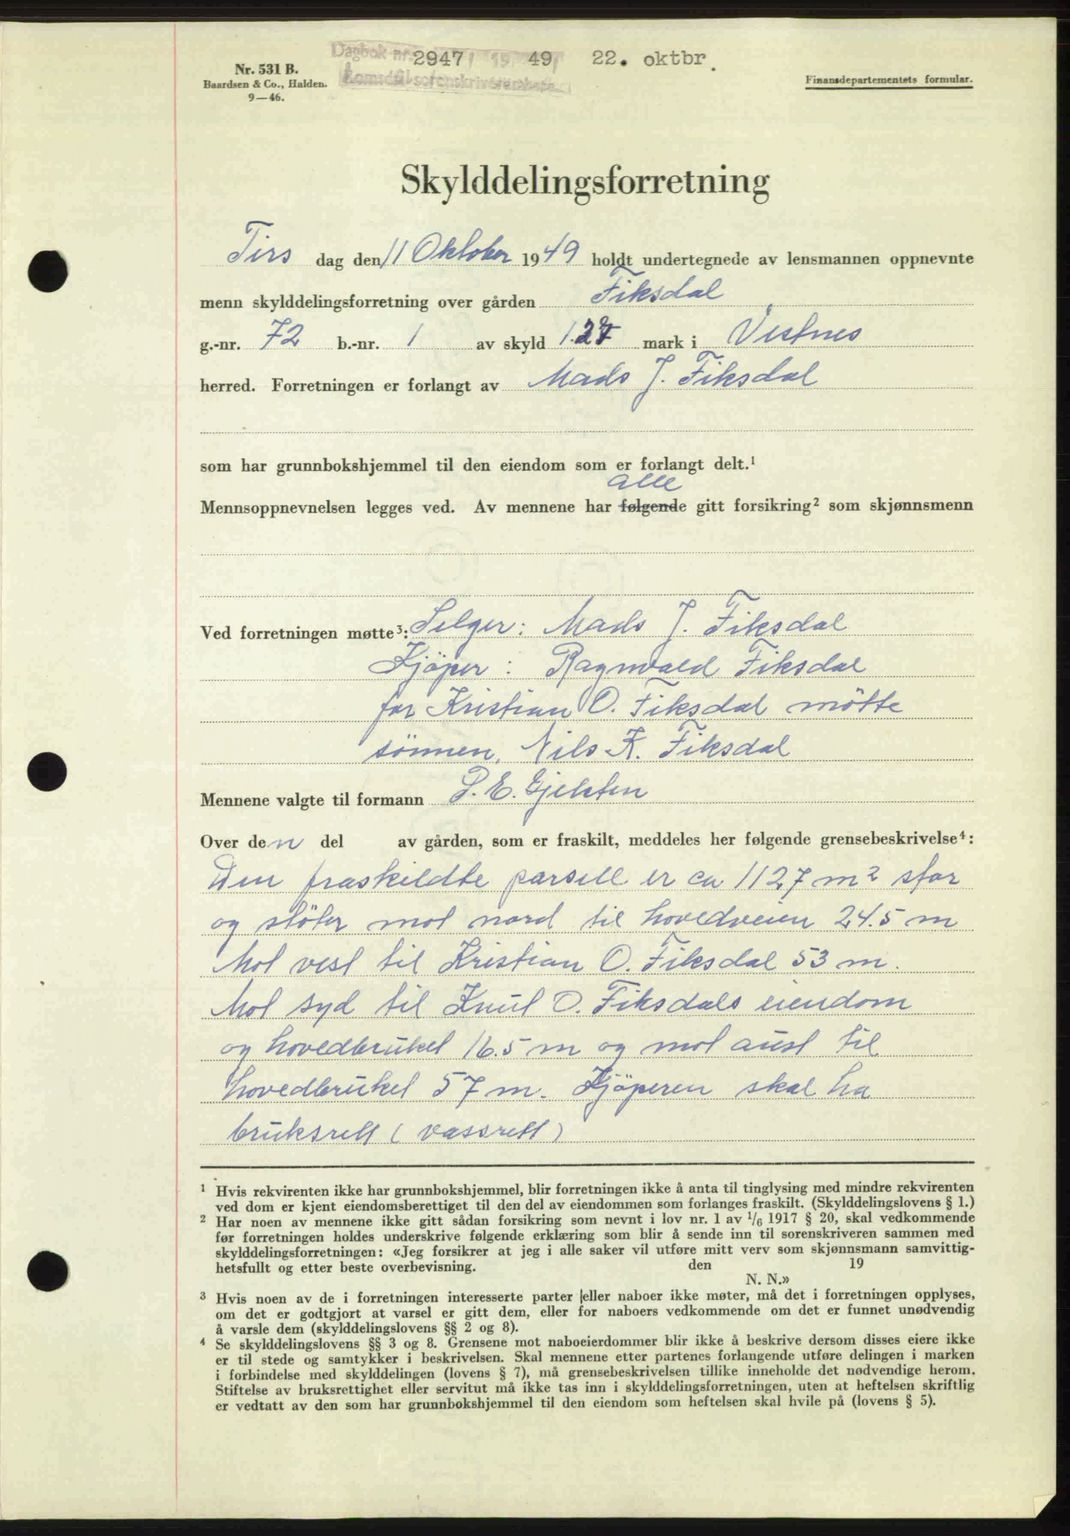 Dagbok nr. 2947 1949 22. oktbr.
Romsdal sorenskriverembede
Nr. 531 B.
Baardsen & Co., Halden.
9—46.
Finansdepartementets formular.
Skylddelingsforretning
Tirs dag den 11 Oktober 1949 holdt undertegnede av lensmannen oppnevnte
menn skylddelingsforretning over gården Fiksdal
g.-nr. 72 b.-nr. 1 av skyld 1.27 mark i Vestnes
herred. Forretningen er forlangt av Mads J. Fiksdal
som har grunnbokshjemmel til den eiendom som er forlangt delt.¹
alle
Mennsoppnevnelsen legges ved. Av mennene har følgende gitt forsikring² som skjønnsmenn
Ved forretningen møtte³: Selger: Mads J. Fiksdal
Kjöper: Ragnvald Fiksdal
for Kristian O. Fiksdal mötte
sönnen, Nils K. Fiksdal
Mennene valgte til formann P. E. Gjelsten
Over den del av gården, som er fraskilt, meddeles her følgende grensebeskrivelse⁴:
Den fraskildte parsell er ca 1127 m² stor
og stöter mot nord til hovedveien 24.5 m
Mot vest til Kristian O. Fiksdal 53 m.
Mot syd til Knut O. Fiksdals eiendom
og hovedbruket 16.5 m og mot aust til
hovedbruket 57 m. Kjöperen skal ha
bruksrett (vassrett)
¹ Hvis rekvirenten ikke har grunnbokshjemmel, blir forretningen ikke å anta til tinglysing med mindre rekvirenten
ved dom er kjent eiendomsberettiget til den del av eiendommen som forlanges fraskilt. (Skylddelingslovens § 1.)
² Har noen av mennene ikke gitt sådan forsikring som nevnt i lov nr. 1 av 1/6 1917 § 20, skal vedkommende
før forretningen holdes underskrive følgende erklæring som blir å sende inn til sorenskriveren sammen med
skylddelingsforretningen: «Jeg forsikrer at jeg i alle saker vil utføre mitt verv som skjønnsmann samvittig-
hetsfullt og etter beste overbevisning. den 19
N. N.»
³ Hvis noen av de i forretningen interesserte parter eller naboer ikke møter, må det i forretningen opplyses,
om det er godtgjort at varsel er gitt dem, eller for naboers vedkommende om det er funnet unødvendig
å varsle dem (skylddelingslovens §§ 2 og 8).
⁴ Se skylddelingslovens §§ 3 og 8. Grensene mot naboeierdommer blir ikke å beskrive dersom disses eiere ikke
er til stede og samtykker i beskrivelsen. Skal mennene etter partenes forlangende utføre delingen i marken
i forbindelse med skylddelingen (lovens § 7), må grensebeskrivelsen tillike inneholde det nødvendige herom.
Stiftelse av bruksrettighet eller servitut må ikke tas inn i skylddelingsforretningen, uten at heftelsen skriftlig
er vedtatt av den som har grunnbokshjemmel til den eiendom som heftelsen skal hvile på (lovens § 5).